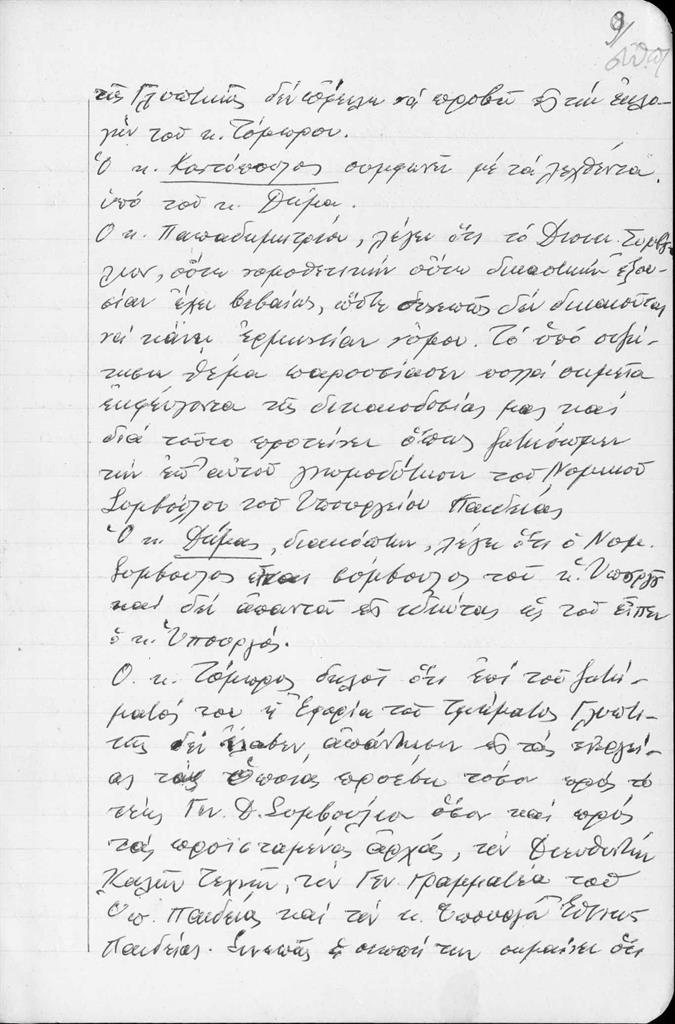 9
τῆς Γλυπτικῆς δὲν ὤφειλε νά προβῆ εἰς τήν ἐκλο-
γήν τοῦ κ. Τόμπρου.
Ὁ κ. Καντόπουλος συμφωνεῖ μέ τά λεχθέντα
ὑπό τοῦ κ. Δήμα.
Ὁ κ. Παπαδημητρίου, λέγει ὅτι τό Διοικ. Συμβού-
λιον, οὔτε νομοθετικήν οὔτε δικαστικήν ἐξου-
σίαν ἔχει βεβαίως, ὥστε συνεπῶς δέν δικαιοῦται
νά κάνει ἑρμηνείαν νόμου. Τό ὑπό συζή-
τησιν θέμα παρουσίασεν πολλά σημεῖα
ἐκφεύγοντα τῆς δικαιοδοσίας μας καί
διά τοῦτο προτείνει ὅπως ζητήσωμεν
τήν ἐπ' αὐτοῦ γνωμοδότησιν τοῦ Νομικοῦ
Συμβούλου τοῦ Ὑπουργείου Παιδείας
Ὁ κ. Δήμας, διακόπτων, λέγει ὅτι ὁ Νομ.
Σύμβουλος εἶναι σύμβουλος τοῦ κ. Ὑπουργοῦ
καί δέν ἀπαντᾶ εἰς ἰδιώτας ὡς τοῦ εἶπεν
ὁ κ. Ὑπουργός.
Ὁ κ. Τόμπρος δηλοῖ ὅτι ἐπί τοῦ ζητή-
ματός του ἡ Ἐφορία τοῦ Τμήματος Γλυπτι-
κῆς δέν ἔλαβεν ἀπάντησιν εἰς τάς ἐνεργεί-
ας τάς ὁποίας προέβη τόσον πρός τό
τέως Γεν. Δ. Συμβούλιον ὅσον καί πρός
τάς προϊσταμένας ἀρχάς, τόν Διευθυντήν
Καλῶν Τεχνῶν, τόν Γεν. Γραμματέα τοῦ
Ὑπ. Παιδείας καί τόν κ. Ὑπουργόν Ἐθνικῆς
Παιδείας. Συνεπῶς ἡ σιωπή των σημαίνει ὅτι